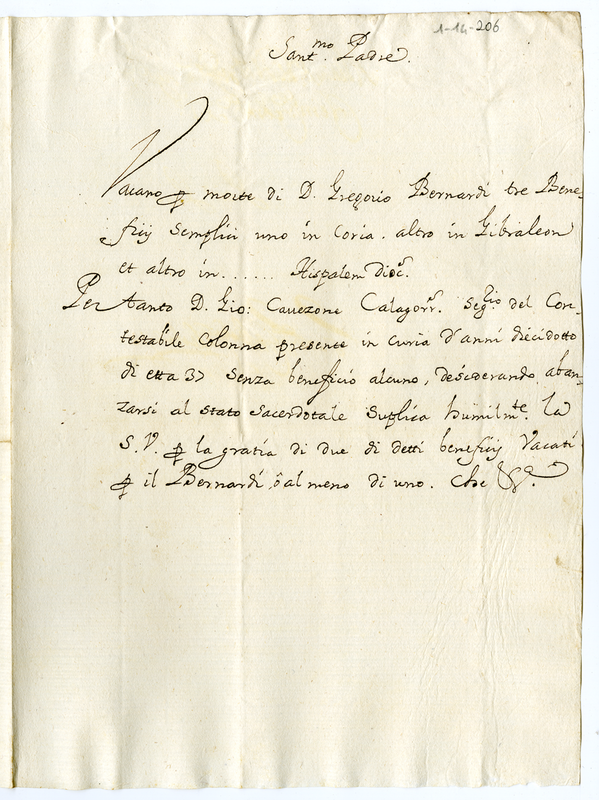 1-14-206
Sant.mo Padre.
Vacano ꝑ morte di D. Gregorio Bernardi tre Bene-
ficij semplici uno in Coria. altro in Gibraleon
et altro in...... Hispalen dioc.
Per tanto D. Gio: Cauezone Calagorr. Seg.rio del Con-
testabile Colonna presente in curia d'anni diecidotto
di etta 37 senza beneficio alcuno, desiderando aban-
zarsi al stato sacerdotale suplica humilm.te la
S.V. ꝑ la gratia di due di detti beneficij Vacati
ꝑ il Bernardi, ò al meno di uno. Che